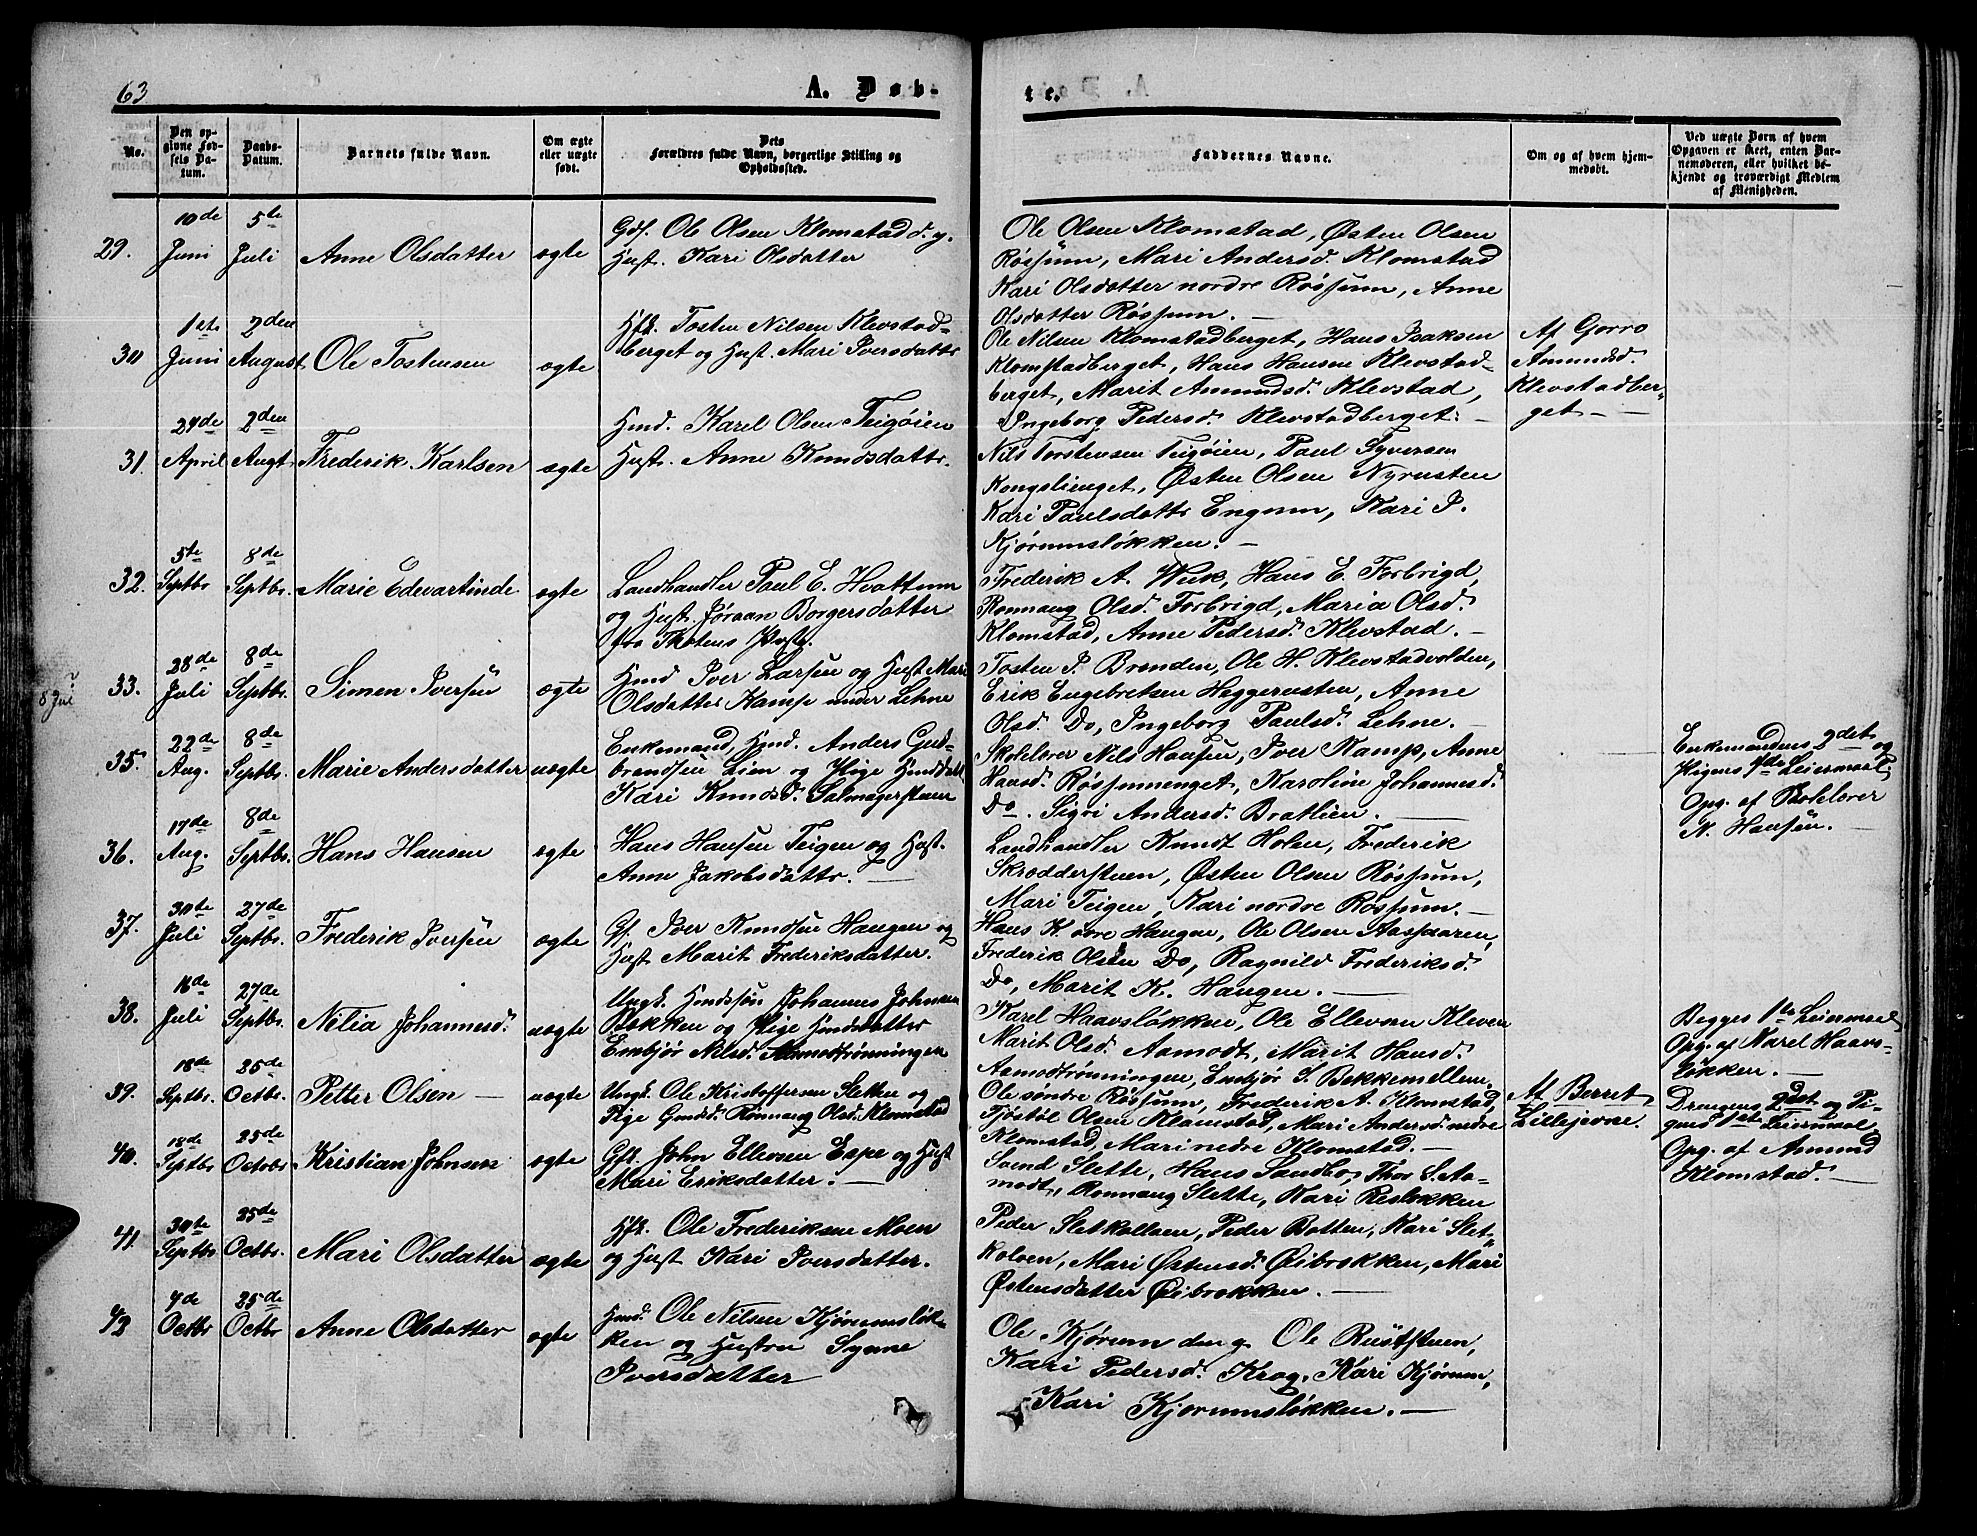 63
A. Døb-
te.
No.
Den op-
givne Fød-
sels Da-
tum.
Daabs-
Datum.
Barnets fulde Navn.
Om ægte
eller uægte
født.
Dets
Forældres fulde Navn, borgerlige Stilling og
Opholdssted.
Faddernes Navne.
Om og af hvem hjem-
medøbt.
Ved uægte Børn af hvem
Opgaven er skeet, enten Bar-
nemoderen, eller hvilket be-
kjendt og troværdigt Medlem
af Menigheden.
29.
10de
Juni
5te
Juli
Anne Olsdatter
ægte
Gdf. Ole Olsen Klomstad d. y.
Hust. Kari Olsdatter
Ole Olsen Klomstad, Østen Olsen
Røssum, Mari Andersd. Klomstad
Kari Olsdatter nordre Røssum, Anne
Olsdatter Røssum. —
30
1ste
Juni
2den
August
Ole Tostensen
ægte
Hfk. Tosten Nilsen Klevstad-
berget og Hust. Mari Iversdattr
Ole Nilsen Klomstadberget, Hans Isaksen
Klomstadberget, Hans Hansen Klevstad-
berget, Marit Amundsd. Klevstad,
Ingeborg Pedersd. Klevstadberget.
Af Gorro
Amundsd.
Klevstadber-
get — —
31.
24de
April
2den
Augt
Frederik Karlsen
ægte
Hmd. Karel Olsen Teigøien
Hust. Anne Knudsdattr.
Nils Torstensen Teigøien, Paul Syversen
Kongslienget, Østen Olsen Nyrusten
Kari Paulsdattr Engum, Kari P.
Kjørumsløkken. —
32.
5te
Septbr
8de
Septbr.
Marie Edevartinde
ægte
Landhandler Paul E. Hvattum
og Hust. Jøraan Borgersdatter
fra Thotens Pgst.
Frederik A. Wiik, Hans E. Forbrigd,
Ronnaug Olsd. Forbrigd, Maria Olsd.
Klomstad, Anne Pedersd. Klevstad. —
8 Jul
33.
28de
Juli
8de
Septbr.
Simen Iversen
ægte
Hmd Iver Larsen og Hust Mari
Olsdatter Kamp under Lehne
Tosten P. Brenden, Ole H. Klevstadvolden,
Erik Engebretsen Heggerusten, Anne
Olsd. Do, Ingeborg Paulsd. Lehne. —
35.
22de
Aug.
8de
Septbr.
Marie Andersdatter
uægte
Enkemand, Hmd. Anders Gud-
brandsen Lien og Pige Hmddatt
Kari Knudsd. Salmagerstuen
Skolelærer Nils Hansen, Iver Kamp, Anne
Hansd. Røssumenget, Karoline Johannesd.
Do. Sigri Andersd. Bratlien. —
Enkemandens 2det og
Pigens 1ste Leiermaal;
Opg. af Skolelærer
N. Hansen. —
36.
17de
Aug.
8de
Septbr.
Hans Hansen
ægte
Hans Hansen Teigen og Hust.
Anne Jakobsdattr. —
Landhandler Knudt Holen, Frederik
Skrodderstuen, Østen Olsen Røssum,
Mari Teigen, Kari nordre Røssum. —
37.
30te
Juli
27de
Septbr.
Frederik Iversen
ægte
Gf. Iver Knudsen Haugen og
Hust Marit Frederiksdatter.
Hans K. øvre Haugen, Ole Olsen Aasaaren,
Frederik Olsen Do, Ragnild Frederiksd.
Do, Marit K. Haugen. —
38.
18de
Juli
27de
Septbr.
Nilia Johannesd.
uægte
Ungk. Hmdssøn Johannes Johnsen
Bakken og Pige Hmdsdatter
Embjør Nilsd. Aamodtrønningen
Karel Haavsløkken, Ole Ellevsen Kleven
Marit Olsd. Aamodt, Marit Hansd.
Aamodtrønningen, Embjør S. Bekkemellem.
Begges 1ste Leiermaal
Opg. af Karel Haavs-
løkken. —
39.
18de
Septbr.
25de
Octbr.
Petter Olsen —
uægte
Ungk. Ole Kristoffersen Sletten og
Pige Gmdsd. Ronnaug Olsd. Klomstad
Ole søndre Røssum, Frederik A. Klomstad,
Tjøstøl Olsen Klomstad, Mari Andersd. nedre
Klomstad, Mari nedre Klomstad. —
Af Berret
Lillejevne.
Drengens 2det og Pi-
gens 1ste Leiermaal
Opg. af Amund
Klomstad. —
40.
18de
Septbr
25de
Octobr
Kristian Johnsen
ægte
Gfk. John Ellevsen Espe og Hust
Mari Eriksdatter. —
Svend Slette, Hans Sandbo, Thor S. Aa-
modt, Ronnaug Slette, Kari Resløkken
41.
30te
Septbr
25de
Octbr.
Mari Olsdatter
ægte
Hfk. Ole Frederiksen Moen
og Hust Kari Iversdatter.
Peder Sletkolven, Peder Botten, Kari Slet-
kolven, Mari Østensd. Øibrokken, Mari
Østensdatter Øibrokken. —
42
7de
Octbr
25de
Octbr
Anne Olsdatter
ægte
Hmd. Ole Nilsen Kjørumsløk-
ken og Hustru Synne
Iversdatter
Ole Kjørum den y. Ole Rustsluen,
Kari Pedersd. Krog, Kari Kjørum,
Kari Kjørumsløkken. —